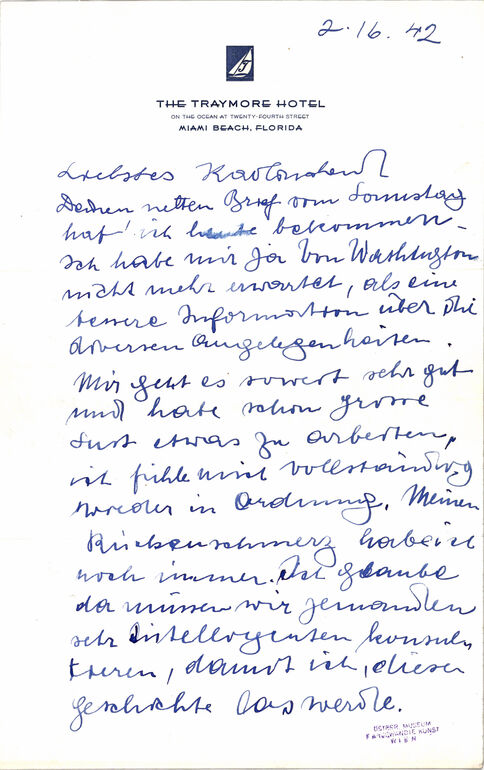 2·16. 42
THE TRAYMORE HOTEL
ON THE OCEAN AT TWENTY-FOURTH STREET
MIAMI BEACH, FLORIDA
Liebstes
Deinen netten Brief vom Sonnstag
hab' ich heute bekommen –
Ich habe mir ja von Washington
nicht mehr erwartet, als eine
bessere Information über die
diversen Angelegenheiten.
Mir geht es soweit sehr gut
und habe schon grosse
Lust etwas zu arbeiten,
ich fühle mich vollständig
wieder in Ordnung. Meinen
Rückenschmerz habe ich
noch immer. Ich glaube
da müssen wir jemanden
sehr intelligenten konsul-
tieren, damit ich, dieser
geschichte los werde.
ÖSTERR. MUSEUM
F. ANGEWANDTE KUNST
WIEN